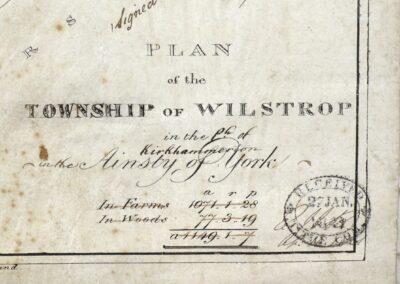 Signed
R S
PLAN
of the
TOWNSHIP OF WILSTROP
in the Ph of
Kirkhammerton
in the Ainsty of York
a r p
In Farms 1071.1.28
In Woods 77.3.19
a 1149.1.7
RECEIVED
27 JAN.
TITHE COM
and